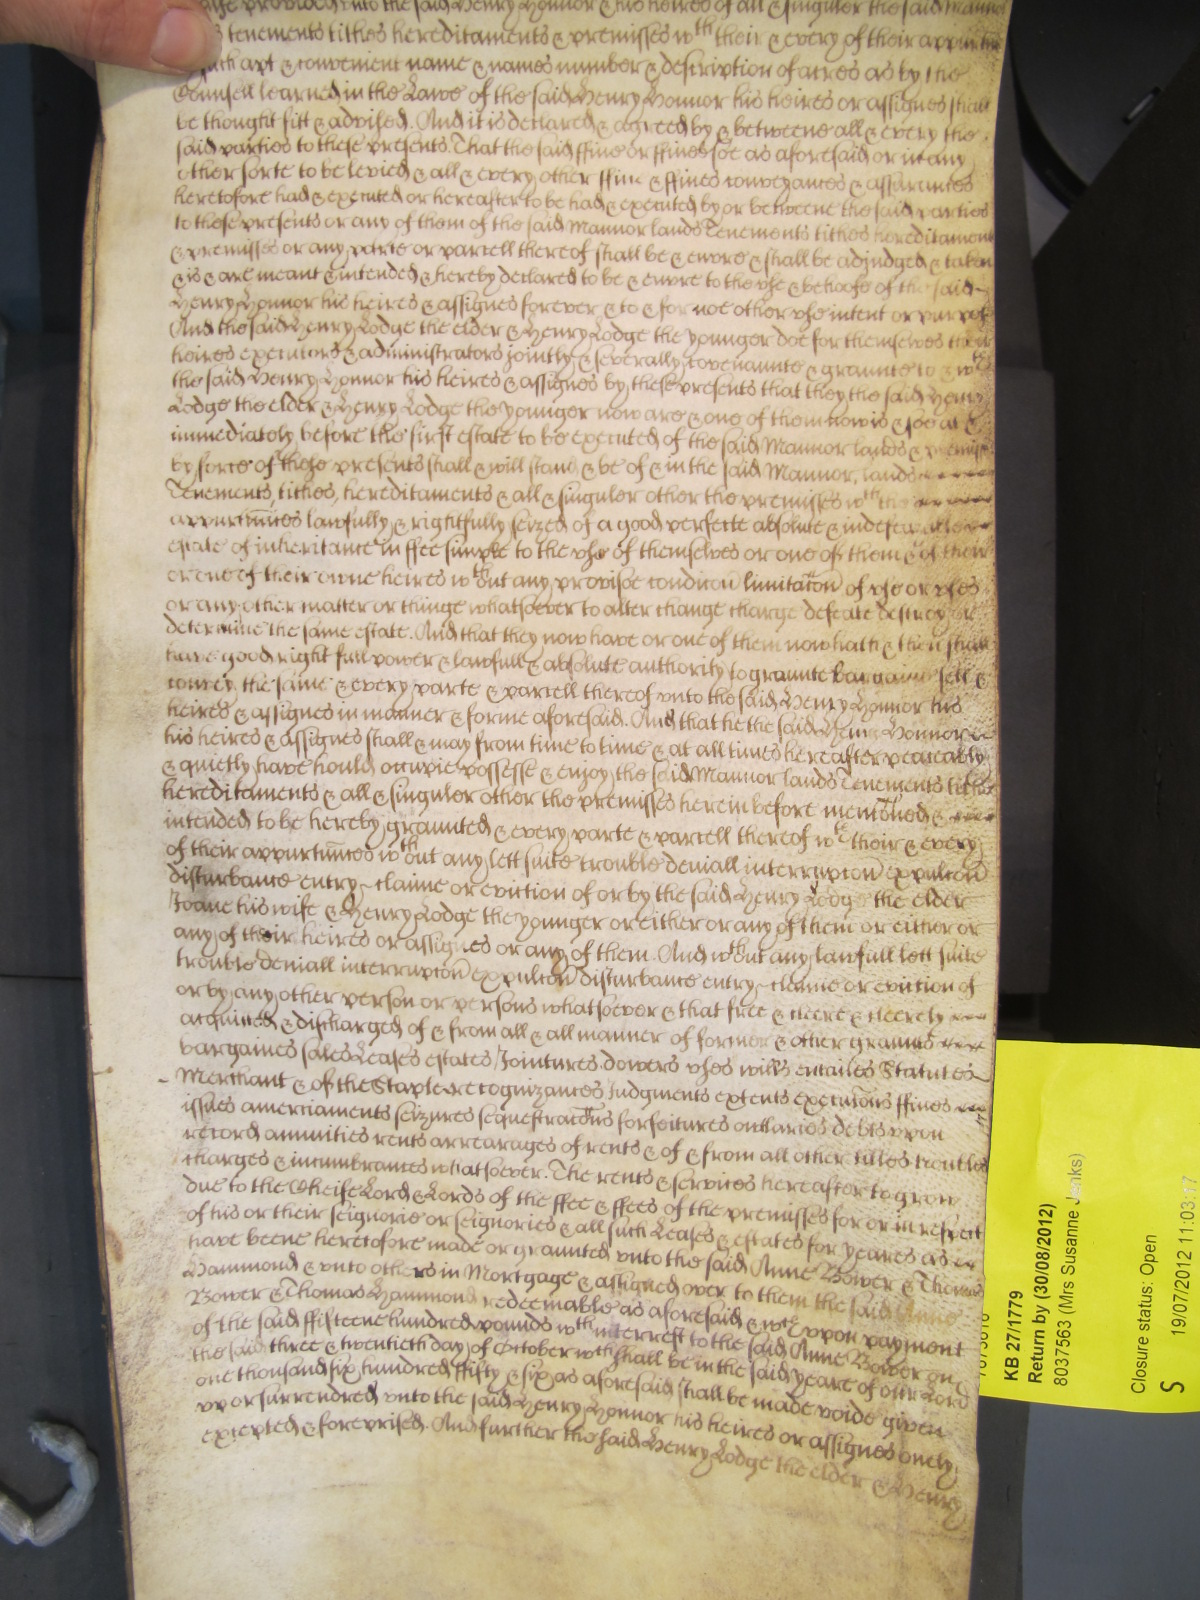 wife provided unto the said Henry Honnor & his heires of all & singuler the said Mannor
tenements tithes hereditaments & premisses wth their & every of their appurten
such apt & convenient name & names number & description of acres as by the
Counsell learned in the Lawe of the said Henry Honnor his heires or assignes shall
be thought fitt & advised. And it is declared & agreed by & betweene all & every the
said parties to these presents. That the said ffine or ffines soe as aforesaid or in any
other sorte to be levied & all & every other ffine & ffines conveyances & assurances
heretofore had & executed or hereafter to be had & executed by or betweene the said parties
to these presents or any of them of the said Mannor lands Tenements tithes hereditaments
& premisses or any parte or parcell thereof shall be & enure & shall be adjudged & taken
& is & are meant & intended & hereby declared to be & enure to the use & behoofe of the said
Henry Honnor his heires & assignes forever & to & for noe other use intent or purpose
And the said Henry Lodge the elder & Henry Lodge the younger doe for themselves their
heires executors & administrators jointly & severally covenaunte & graunte to & wth
the said Henry Honnor his heires & assignes by these presents that they the said Henry
Lodge the elder & Henry Lodge the younger now are & one of them now is & soe at &
immediately before the first estate to be executed of the said Mannor lands & premisses
by force of these presents shall & will stand & be of & in the said Mannor, lands
Tenements, tithes, hereditaments & all & singuler other the premisses wth the
appurtunces lawfully & rightfully seized of a good perfecte absolute & indefeazable
estate of inheritance in ffee simple to the use of themselves or one of them & of their
or one of their owne heires wthout any provisoe condicon limitacon of use or uses
or any other matter or thinge whatsoever to alter change charge defeate destroy or
determine the same estate. And that they now have or one of them now hath & then shall
have good right full power & lawfull & absolute authority to graunte bargaine sell &
convey the same & every parte & parcell thereof unto the said Henry Honnor his
heires & assignes in manner & forme aforesaid. And that he the said Henry Honnor
his heires & assignes shall & may from time to time & at all times hereafter peaceably
& quietly have hould occupie possesse & enjoy the said Mannor lands Tenements tithes
hereditaments & all & singuler other the premisses herein before mentioned &
intended to be hereby graunted & every parte & parcell thereof wth their & every
of their appurtunces wthout any lett suite trouble deniall interrupcon expulcon
disturbance entry claime or eviction of or by the said Henry Lodge the elder
Joane his wife & Henry Lodge the younger or either or any of them or either or
any of their heires or assignes or any of them. And wthout any lawfull lett suite
trouble deniall interrupcon expulcon disturbance entry claime or eviction of
or by any other person or persons whatsoever & that free & cleere & cleerely
acquitted & discharged of & from all & all manner of former & other graunts
bargaines sales Leases estates Jointures dowers uses wills entailes Statutes
Merchant & of the Staple recognizances Judgments extents execucons ffines
issues amerciaments seizures sequestracons forfeitures outlaries debts upon
record annuities rents arrearages of rents & of & from all other titles troubles
charges & incumbrances whatsoever. The rents & services hereafter to grow
due to the Cheife Lord & Lords of the ffee & ffees of the premisses for or in respect
of his or their seignorie or seignories & all such Leases & estates for yeares as
have beene heretofore made or graunted unto the said Anne Bower & Thomas
Hammond & unto others in Mortgage & assigned over to them the said Anne
Bower & Thomas Hammond redeemable as aforesaid & wch upon payment
of the said ffifteene hundred pounds wth interrest to the said Anne Bower on
the said three & twentieth day of October wch shall be in the said yeare of our Lord
one thousand six hundred ffifty & six as aforesaid shall be made voide given
up or surrendred unto the said Henry Honnor his heires or assignes onely
excepted & foreprised. And further the said Henry Lodge the elder & Henry
KB 27/1779
Return by (30/08/2012)
8037563 (Mrs Susanne Jenks)
Closure status: Open
S 19/07/2012 11:03:17